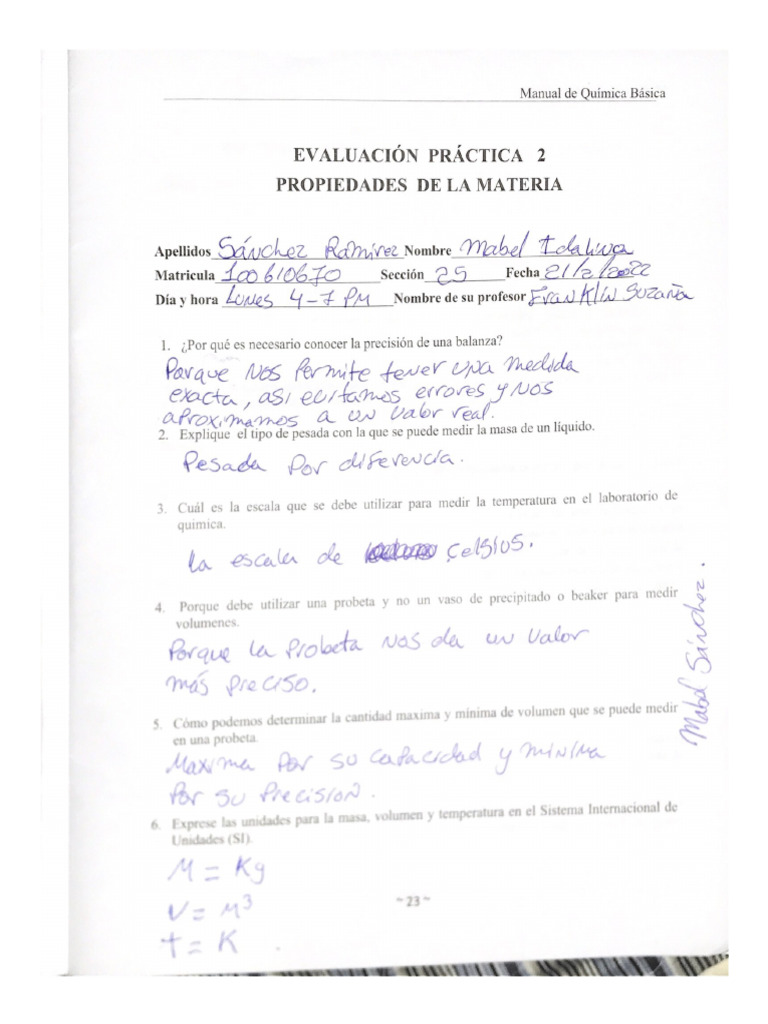 Manual de Química Básica
EVALUACIÓN PRÁCTICA 2
PROPIEDADES DE LA MATERIA
Apellidos Sánchez Ramírez Nombre Mabel Idalina
Matricula 100610670 Sección 25 Fecha 21/2/2022
Día y hora Lunes 4-7 PM Nombre de su profesor Franklin Suzaña
1. ¿Por qué es necesario conocer la precisión de una balanza?
Porque nos permite tener una medida
exacta, asi evitamos errores y nos
aproximamos a un valor real.
2. Explique el tipo de pesada con la que se puede medir la masa de un líquido.
Pesada por diferencia.
3. Cuál es la escala que se debe utilizar para medir la temperatura en el laboratorio de
quimica.
La escala de Celsios.
4. Porque debe utilizar una probeta y no un vaso de precipitado o beaker para medir
volumenes.
Porque la probeta nos da un valor
más preciso.
5. Cómo podemos determinar la cantidad maxima y mínima de volumen que se puede medir
en una probeta.
Maxima por su capacidad y minima
por su precision.
6. Exprese las unidades para la masa, volumen y temperatura en el Sistema Internacional de
Unidades (SI).
M = Kg
V = M³
t = K
~ 23 ~
Mabel Sánchez.